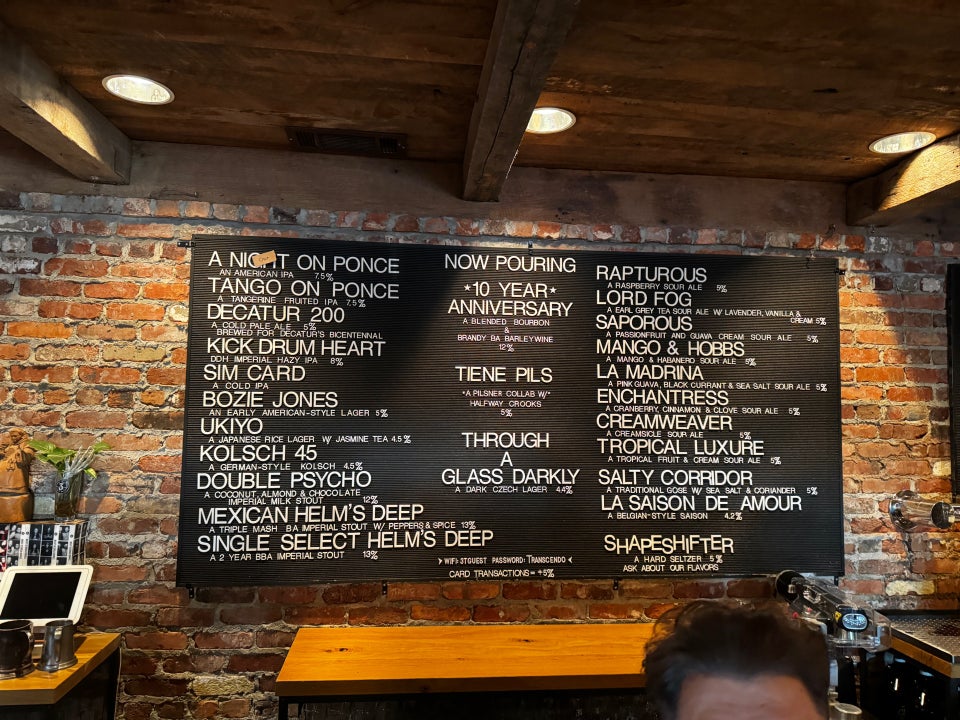 A NIGHT ON PONCE
AN AMERICAN IPA 7.5%
TANGO ON PONCE
A TANGERINE FRUITED IPA 7.5%
DECATUR 200
A COLD PALE ALE 5%
BREWED FOR DECATUR'S BICENTENNIAL
KICK DRUM HEART
DDH IMPERIAL HAZY IPA 8%
SIM CARD
A COLD IPA
BOZIE JONES
AN EARLY AMERICAN-STYLE LAGER 5%
UKIYO
A JAPANESE RICE LAGER W/ JASMINE TEA 4.5%
KOLSCH 45
A GERMAN-STYLE KOLSCH 4.5%
DOUBLE PSYCHO
A COCONUT, ALMOND & CHOCOLATE
IMPERIAL MILK STOUT 12%
MEXICAN HELM'S DEEP
A TRIPLE MASH BA IMPERIAL STOUT W/ PEPPERS & SPICE 13%
SINGLE SELECT HELM'S DEEP
A 2 YEAR BBA IMPERIAL STOUT 13%
NOW POURING
*10 YEAR*
ANNIVERSARY
A BLENDED BOURBON
&
BRANDY BA BARLEYWINE
12%
TIENE PILS
*A PILSNER COLLAB W/*
HALFWAY CROOKS
5%
THROUGH
A
GLASS DARKLY
A DARK CZECH LAGER 4.4%
> WIFI: 3TGUEST PASSWORD: TRANSCENDO <
CARD TRANSACTIONS = +5%
RAPTUROUS
A RASPBERRY SOUR ALE 5%
LORD FOG
A EARL GREY TEA SOUR ALE W/ LAVENDER, VANILLA &
CREAM 5%
SAPOROUS
A PASSIONFRUIT AND GUAVA CREAM SOUR ALE 5%
MANGO & HOBBS
A MANGO & HABANERO SOUR ALE 5%
LA MADRINA
A PINK GUAVA, BLACK CURRANT & SEA SALT SOUR ALE 5%
ENCHANTRESS
A CRANBERRY, CINNAMON & CLOVE SOUR ALE 5%
CREAMWEAVER
A CREAMSICLE SOUR ALE 5%
TROPICAL LUXURE
A TROPICAL FRUIT & CREAM SOUR ALE 5%
SALTY CORRIDOR
A TRADITIONAL GOSE W/ SEA SALT & CORIANDER 5%
LA SAISON DE AMOUR
A BELGIAN-STYLE SAISON 4.2%
SHAPESHIFTER
A HARD SELTZER 5%
ASK ABOUT OUR FLAVORS